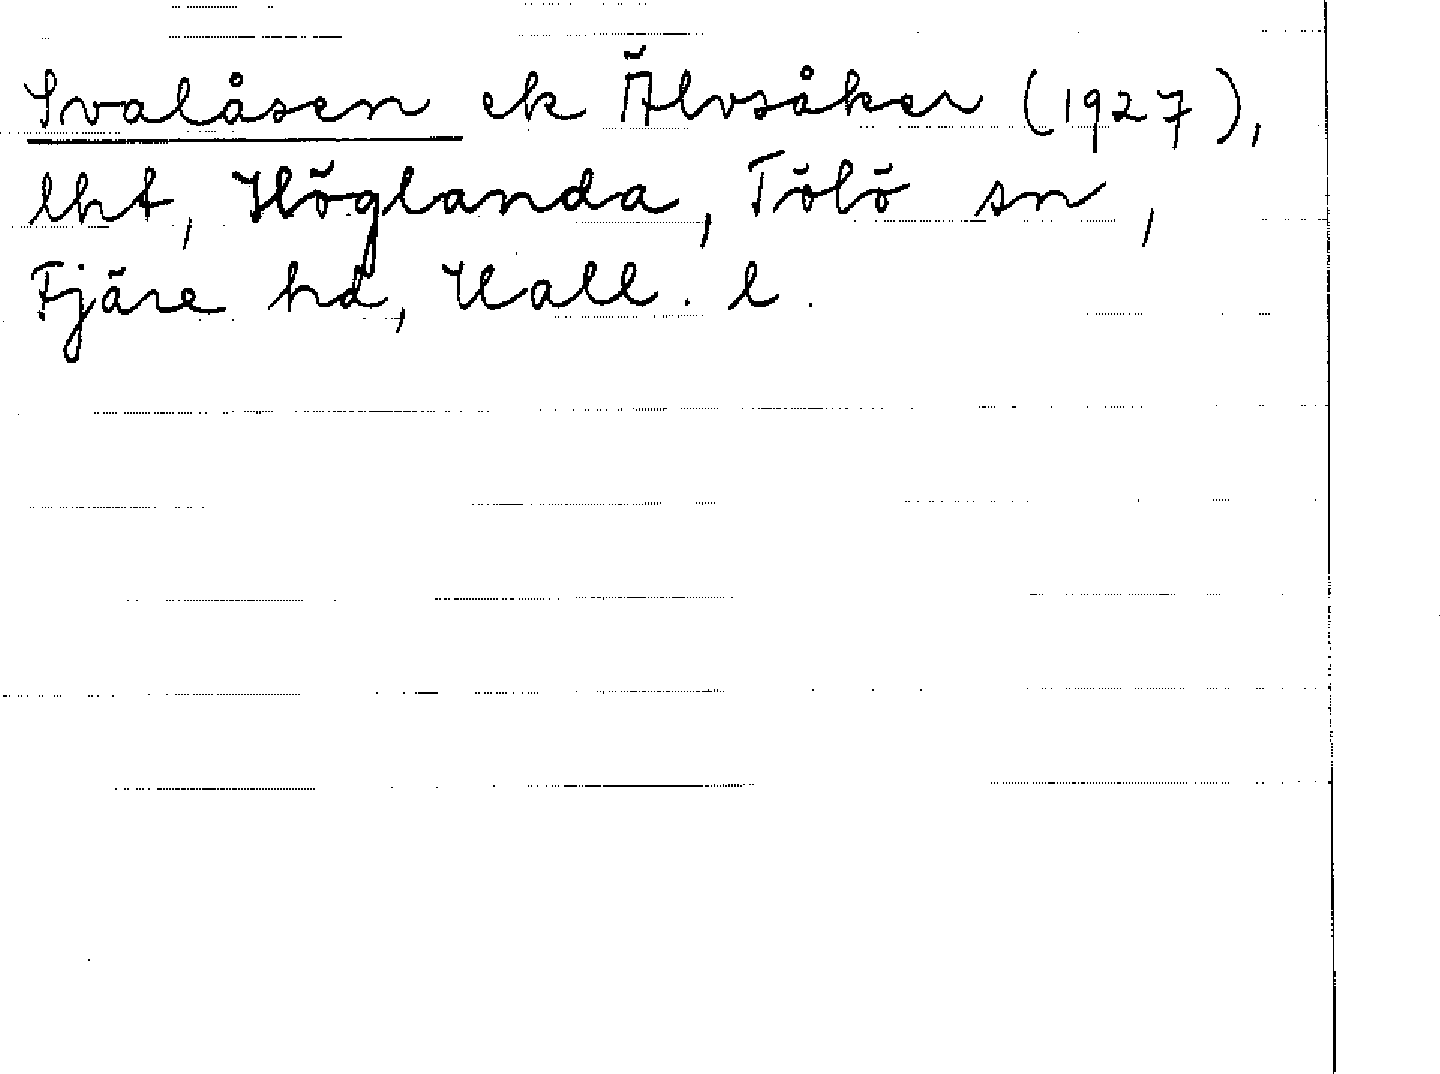 Svalåsen ek Älvsåker (1927),
lht, Höglanda, Tölö sn,
Fjäre hd, Hall. l.